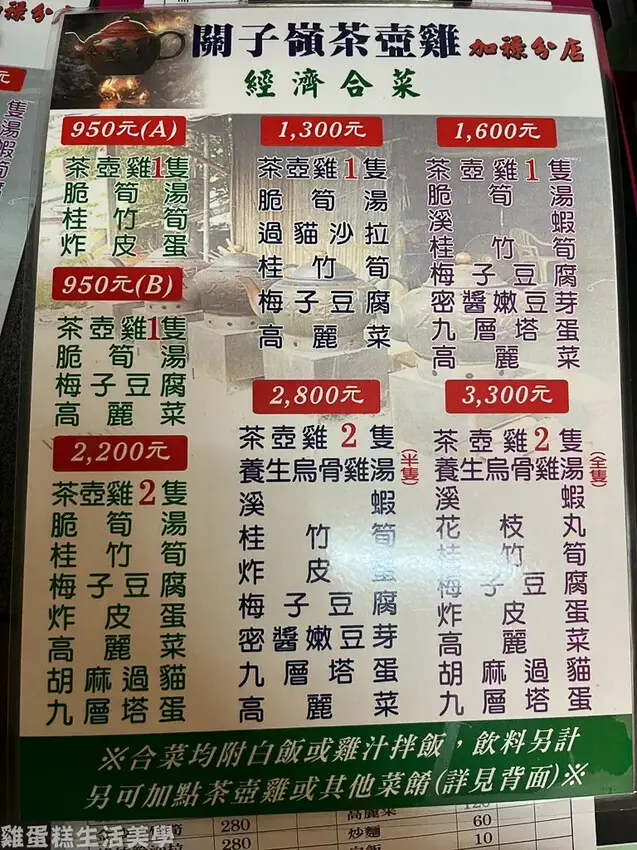 關子嶺茶壺雞 加祿分店
經濟合菜
950元(A)
茶壺雞1隻
脆筍湯
桂竹筍
炸皮蛋
950元(B)
茶壺雞1隻
脆筍湯
梅子豆腐
高麗菜
2,200元
茶壺雞2隻
脆筍湯
桂竹筍
梅子豆腐
炸皮蛋
高麗菜
胡麻過貓
九層塔蛋
1,300元
茶壺雞1隻
脆筍湯
過貓沙拉
桂竹筍
梅子豆腐
高麗菜
2,800元
茶壺雞2隻
養生烏骨雞湯(半隻)
溪蝦
桂竹筍
炸皮蛋
梅子豆腐
密醬嫩豆芽
九層塔蛋
高麗菜
1,600元
茶壺雞1隻
脆筍湯
溪蝦
桂竹筍
梅子豆腐
密醬嫩豆芽
九層塔蛋
高麗菜
3,300元
茶壺雞2隻
養生烏骨雞湯(全隻)
溪蝦
花枝丸
桂竹筍
梅子豆腐
炸皮蛋
高麗菜
胡麻過貓
九層塔蛋
※合菜均附白飯或雞汁拌飯,飲料另計
另可加點茶壺雞或其他菜餚(詳見背面)※
280
280
高麗菜
120
炒麵
60
白飯
10
雞蛋糕生活美學